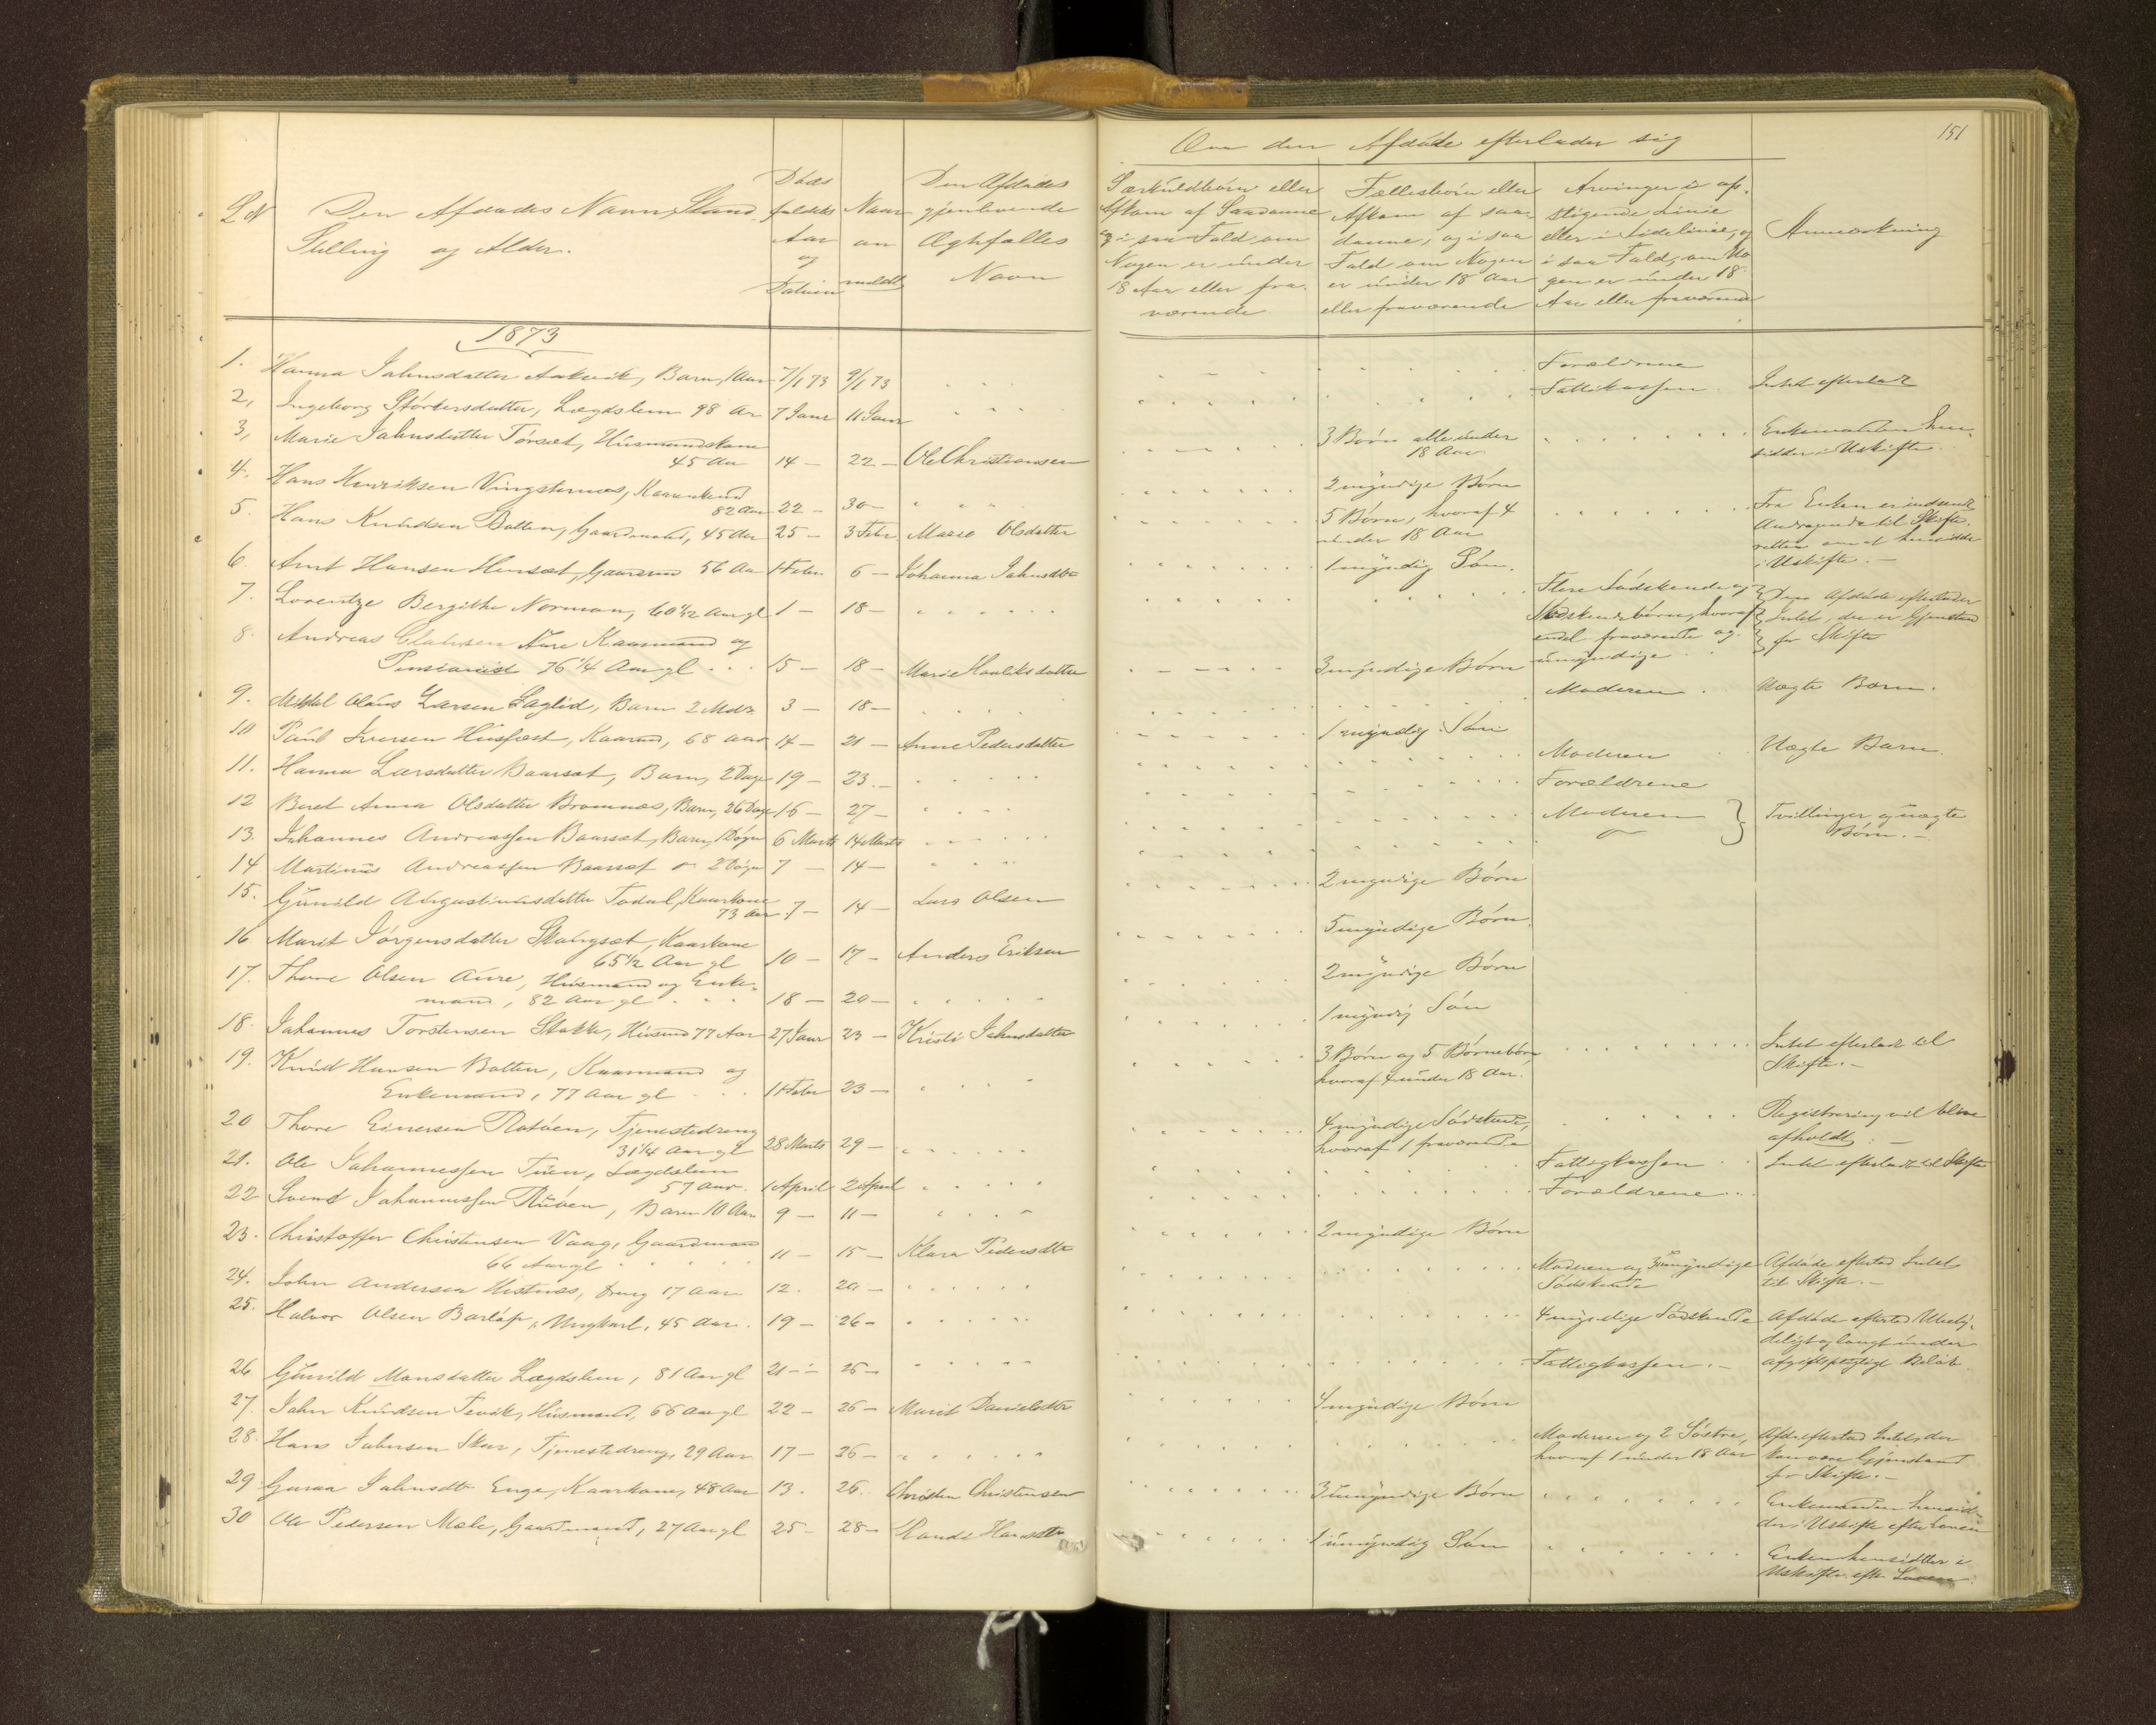 151
Om den Afdøde efterlader sig
L. N
Den Afdødes Navn, Stand
Stilling og Alder.
Døds
faldets
Aar
og
Datum
Naar
an
meldt
Den Afdødes
gjenlevende
Ægtefælles
Navn
Særkuldbørn eller
Afkom af Saadanne
og i saa Fald om
Nogen er under
18 Aar eller fra-
værende
Fællesbørn eller
Afkom af saa-
danne, og i saa
Fald om Nogen
er under 18 Aar
eller fraværende
Arvinger i op-
stigende Linie
eller i Sidelinie, og
i saa Fald, om No
gen er under 18
Aar eller fraværende
Anmærkning
1873
1. Hanna Jahnsdatter Aakvik, Barn, 1 Aar 7/1 73 9/1 73 Forældrene
2, Ingeborg Størkersdatter, Lægdslem 98 Ar 7 Janr 11 Janr Fattikassen Intet efterladt
3, Marie Jahnsdatter Tørset, Husmandskone
45 Aar 14 - 22 - Ole Christiansen 3 Børn alle under
18 Aar Enkemanden hen-
sidder i Uskifte
4. Hans Henriksen Vingsternes, Kaarenkemd
82 Aar 22 - 30 - 2 myndige Børn
5. Hans Knudsen Botten, Gaardmand, 45 Aar 25 - 3 Febr Maree Olsdatter 5 Børn, hvoraf 4
under 18 Aar Fra Enken er indsendt
Andragende til Skifte-
retten om at hensidde
i Uskifte. -
6. Arnt Hansen Henset, Gaardmd 56 Aar 1 Febr 6 - Johanna Jahnsdtr 1 myndig Søn.
7. Lorentze Bergithe Norman, 60 1/2 Aar gl 1 - 18 - Flere Sødskende og
Sødskendebørn, hvoraf
endel fraværende og
umyndige Den Afdøde efterlader
Intet, der er Gjenstand
for Skifte
8. Andreas Clausen Aure Kaarmand og
Pensionist 76 1/4 Aar gl 15 - 18 - Marie Hauliksdatter 3 myndige Børn
9. Mikkal Olaus Larsen Laglid, Barn 2 Mdr 3 - 18 - Moderen Uægte Barn.
10 Paul Iversen Husfest, Kaarmd, 68 Aar 14 - 21 - Anne Pedersdatter 1 myndig Søn
11. Hanna Larsdatter Baarset, Barn, 2 Dage 19 - 23. - Moderen Uægte Barn.
12 Beret Anna Olsdatter Bromnes, Barn, 26 Dage 16 - 27 - Forældrene
13. Johannes Andreassen Baarset, Barn, 1 Døgn 6 Marts 14 Marts Moderen Tvillinger og uægte
Børn. -
14 Martinus Andreassen Baarset 2 Døgn 7 - 14 -
15. Gunild Augustinusdatter Todal, Kaarkone
73 Aar 7 - 14 - Lars Olsen 2 myndige Børn
16 Marit Jørgensdatter Skaugset, Kaarkone
65 1/2 Aar gl 10 - 17 - Anders Eriksen 5 myndige Børn.
17. Thore Olsen Aure, Husmand og Enke-
mand, 82 Aar gl 18 - 20 - 2 myndige Børn
18. Johannes Torstensen Stokke, Husmd 77 Aar 27 Janr 23 - Kristi Jahnsdatter 1 myndig Søn
19. Knud Hansen Botten, Kaarmand og
Enkemand, 77 Aar gl 1 Febr 23 - 3 Børn og 5 Børnebørn
hvoraf 4 under 18 Aar. Intet efterladt til
Skifte. -
20 Thore Einersen Rotøen, Tjenestedreng
31 1/4 Aar gl 28 Marts 29 - 4 myndige Sødskende,
hvoraf 1 fraværende Registrering vil blive
afholdt. -
21. Ole Johannessen Tuen, Lægdslem
57 Aar. 1 April 2 April Fattigkassen Intet efterladt til Skifte
22 Svend Johannessen Ruøen, Barn 10 Aar 9 - 11 - Forældrene
23. Christoffer Christensen Vaag, Gaardmand
66 Aar gl 11 - 15 - Klara Pedersdtr 2 myndige Børn
24. John Andersen Histnes, dreng 17 Aar 12. 20 - Moderen og 3 umyndige
Sødskende Afdøde efterlod Intet
til Skifte. -
25. Halvor Olsen Barløp, Ungkarl, 45 Aar. 19 - 26 - 4 myndige Sødskende Afdøde efterlod Ubety-
deligt og langt under
afgiftspligtigt Beløb
26 Gunild Monsdatter Lægdslem, 81 Aar gl 21 - 26 - Fattigkassen. -
27. Jahn Knudsen Tevik, Husmand, 66 Aar gl 22 - 26 - Marit Danielsdtr 4 myndige Børn
28. Hans Jahnsen Skar, Tjenestedreng, 29 Aar 17 - 26 - Moderen og 2 Søstre,
hvoraf 1 under 18 Aar Afd. efterlod Intet, der
kan være Gjenstand
for Skifte. -
29 Guraa Jahnsdtr Enge, Kaarkone, 48 Aar 13. 26. Christen Christensen 3 umyndige Børn Enkemanden hensid-
der i Uskifte efter Loven
30 Ole Pedersen Mæle, Gaardmand, 27 Aar gl 25 - 28 - Randi Hansdtr 1 umyndig Søn Enken hensidder i
Uskifte efter Loven